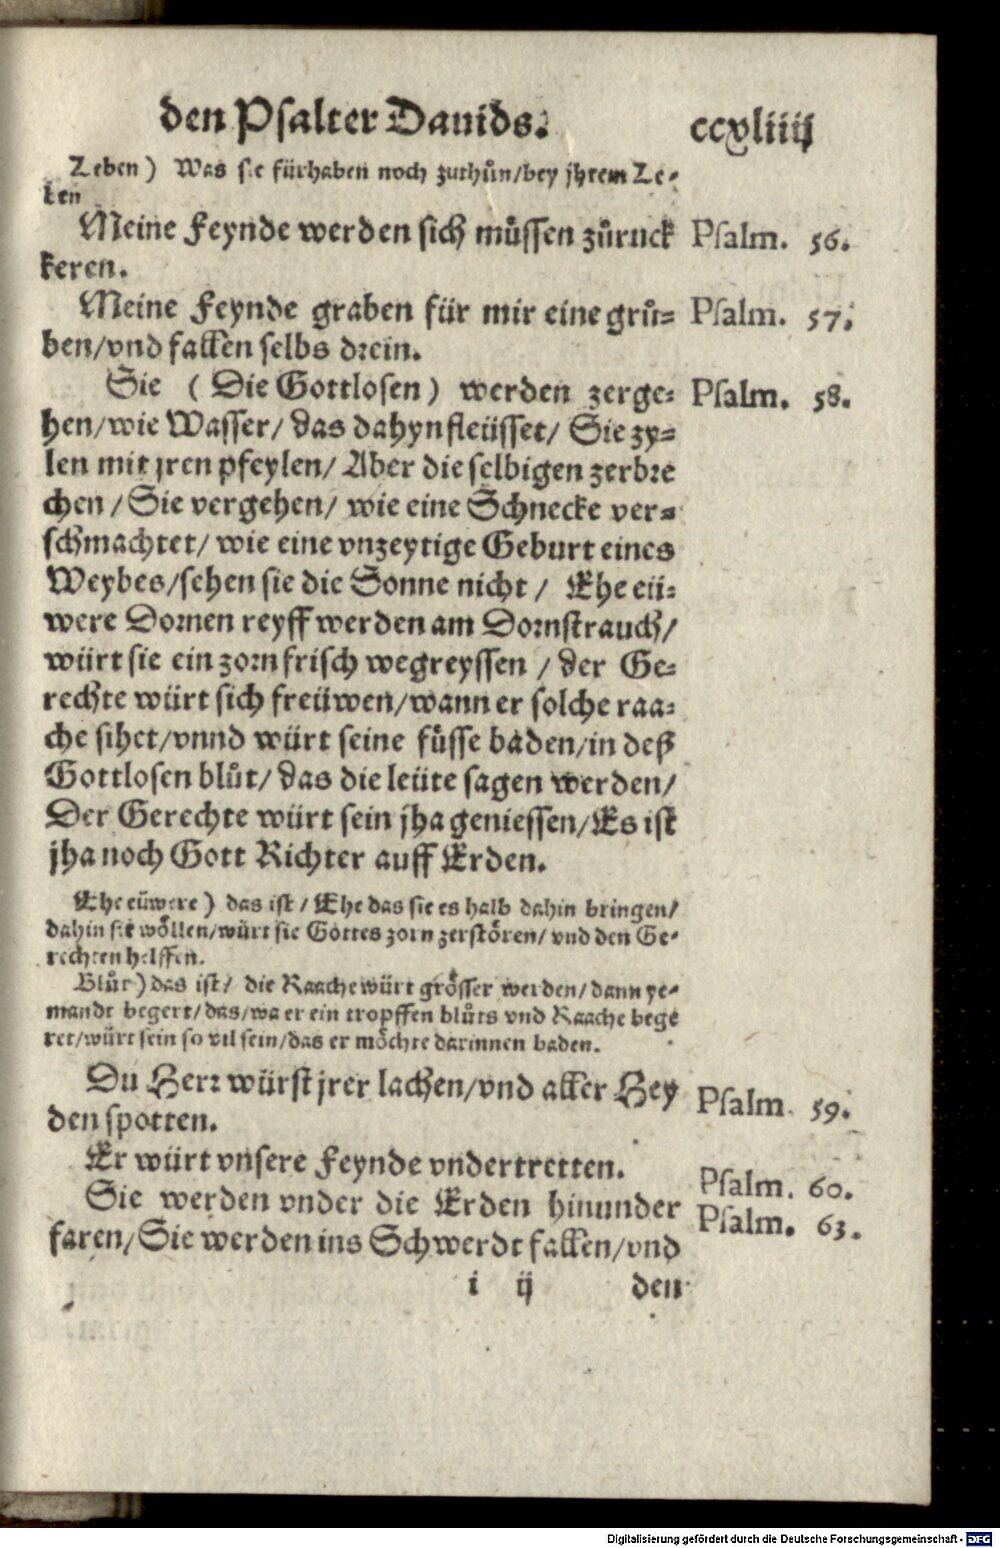 den Psalter Dauids. ccxliiij
Leben) Was sie fürhaben noch zuthůn/bey jhrem Le-
ben
Meine Feynde werden sich müssen zůruck Psalm. 56.
keren.
Meine Feynde graben für mir eine grů- Psalm. 57.
ben/vnd fallen selbs drein.
Sie (Die Gottlosen) werden zerge- Psalm. 58.
hen/wie Wasser/ das dahyn fleüsset/ Sie zy-
len mit jren pfeylen/ Aber die selbigen zerbre
chen/Sie vergehen/ wie eine Schnecke ver-
schmachtet/ wie eine vnzeytige Geburt eines
Weybes/sehen sie die Sonne nicht/ Ehe eü-
were Dornen reyff werden am Dornstrauch/
würt sie ein zorn frisch wegreyssen/der Ge-
rechte würt sich freüwen/wann er solche raa-
che sihet/vnnd würt seine füsse baden/in deß
Gottlosen blůt/das die leüte sagen werden/
Der Gerechte würt sein jha geniessen/Es ist
jha noch Gott Richter auff Erden.
Ehe eüwere) das ist/Ehe das sie es halb dahin bringen/
dahin sie wöllen/würt sie Gottes zorn zerstören/vnd den Ge-
rechten helffen.
Blůt) das ist/ die Raache würt grösser werden/dann ye-
mandt begert/das/wa er ein tropffen blůts vnd Raache bege
ret/würt sein so vil sein/das er möchte darinnen baden.
Du Herr würst jrer lachen/vnd aller Hey Psalm. 59.
den spotten.
Er würt vnsere Feynde vndertretten. Psalm. 60.
Sie werden vnder die Erden hinunder Psalm. 63.
faren/Sie werden ins Schwerdt fallen/vnd
i ij den
Digitalisierung gefördert durch die Deutsche Forschungsgemeinschaft - DFG